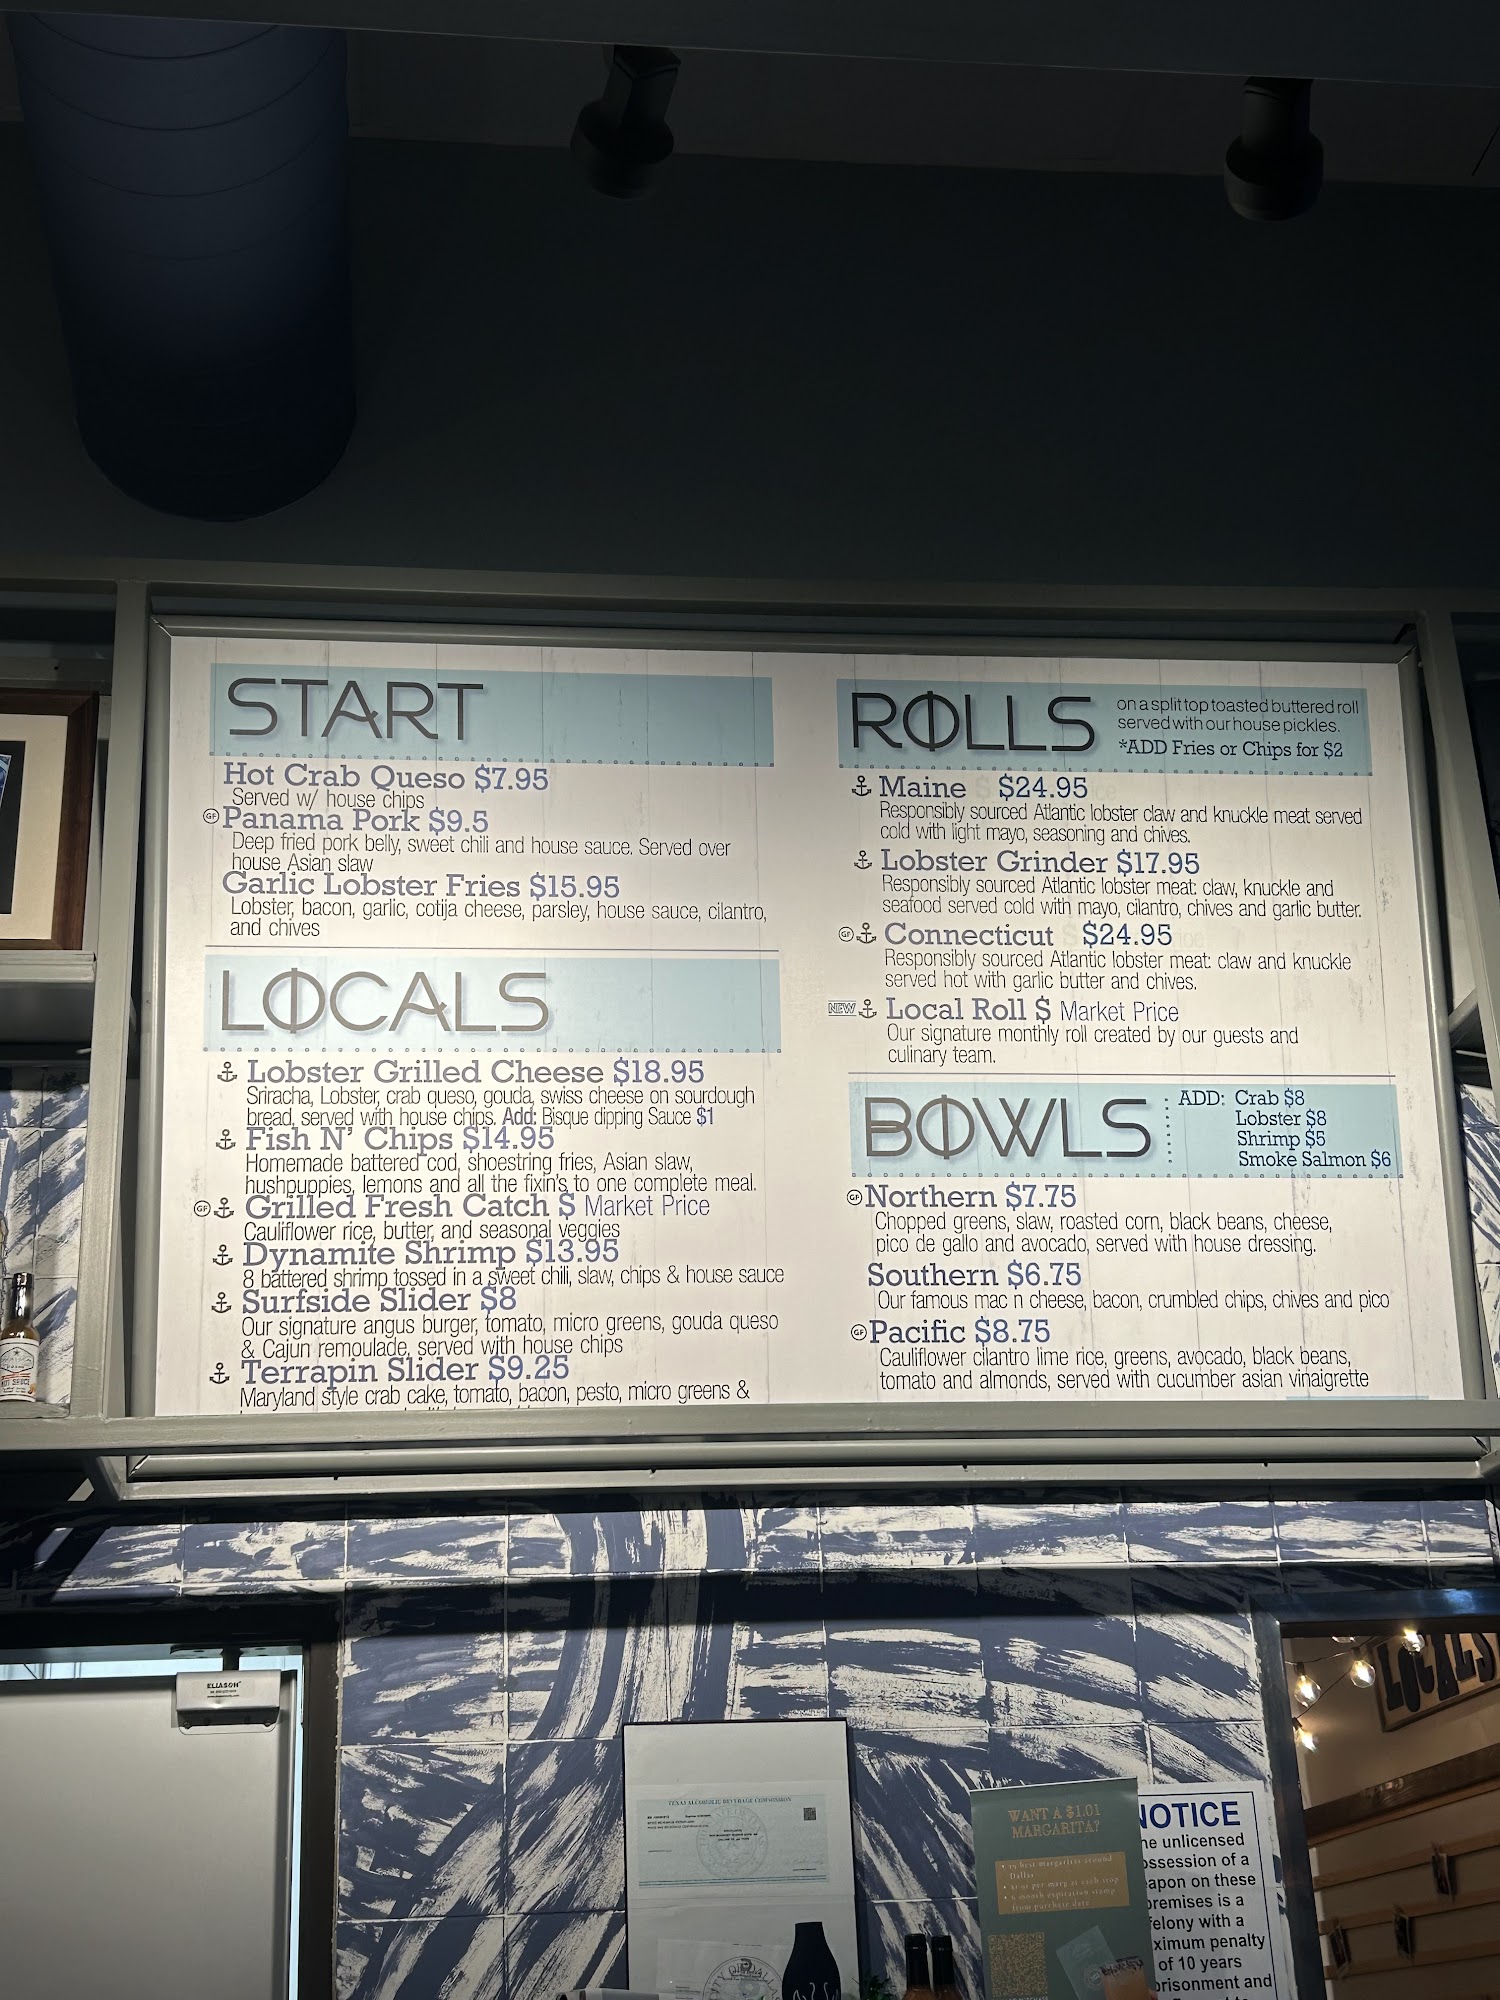 START
Hot Crab Queso $7.95
Served w/ house chips
GF Panama Pork $9.5
Deep fried pork belly, sweet chili and house sauce. Served over
house Asian slaw
Garlic Lobster Fries $15.95
Lobster, bacon, garlic, cotija cheese, parsley, house sauce, cilantro,
and chives
LOCALS
Lobster Grilled Cheese $18.95
Sriracha, Lobster, crab queso, gouda, swiss cheese on sourdough
bread, served with house chips. Add: Bisque dipping Sauce $1
Fish N' Chips $14.95
Homemade battered cod, shoestring fries, Asian slaw,
hushpuppies, lemons and all the fixin's to one complete meal.
GF Grilled Fresh Catch $ Market Price
Cauliflower rice, butter, and seasonal veggies
Dynamite Shrimp $13.95
8 battered shrimp tossed in a sweet chili, slaw, chips & house sauce
Surfside Slider $8
Our signature angus burger, tomato, micro greens, gouda queso
& Cajun remoulade, served with house chips
Terrapin Slider $9.25
Maryland style crab cake, tomato, bacon, pesto, micro greens &
ROLLS
on a split top toasted buttered roll
served with our house pickles.
*ADD Fries or Chips for $2
Maine $24.95
Responsibly sourced Atlantic lobster claw and knuckle meat served
cold with light mayo, seasoning and chives.
Lobster Grinder $17.95
Responsibly sourced Atlantic lobster meat: claw, knuckle and
seafood served cold with mayo, cilantro, chives and garlic butter.
GF Connecticut $24.95
Responsibly sourced Atlantic lobster meat: claw and knuckle
served hot with garlic butter and chives.
NEW Local Roll $ Market Price
Our signature monthly roll created by our guests and
culinary team.
BOWLS
ADD: Crab $8
Lobster $8
Shrimp $5
Smoke Salmon $6
GF Northern $7.75
Chopped greens, slaw, roasted corn, black beans, cheese,
pico de gallo and avocado, served with house dressing.
Southern $6.75
Our famous mac n cheese, bacon, crumbled chips, chives and pico
GF Pacific $8.75
Cauliflower cilantro lime rice, greens, avocado, black beans,
tomato and almonds, served with cucumber asian vinaigrette
ELIASON
LOCALS
TEXAS ALCOHOLIC BEVERAGE COMMISSION
WANT A $1.01
MARGARITA?
19 best margaritas around
Dallas
$1.01 per marg at each stop
6 month expiration stamp
from purchase date
NOTICE
he unlicensed
ossession of a
eapon on these
premises is a
felony with a
ximum penalty
of 10 years
prisonment and